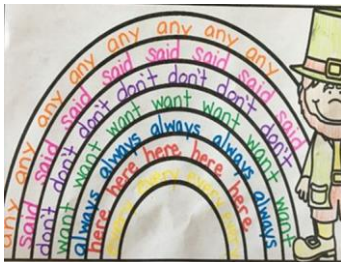 any any any any any any any any
said said said said said said said
don't don't don't don't don't don't don't
want want want want want want want
always always always always always
here here here here here
every every every every